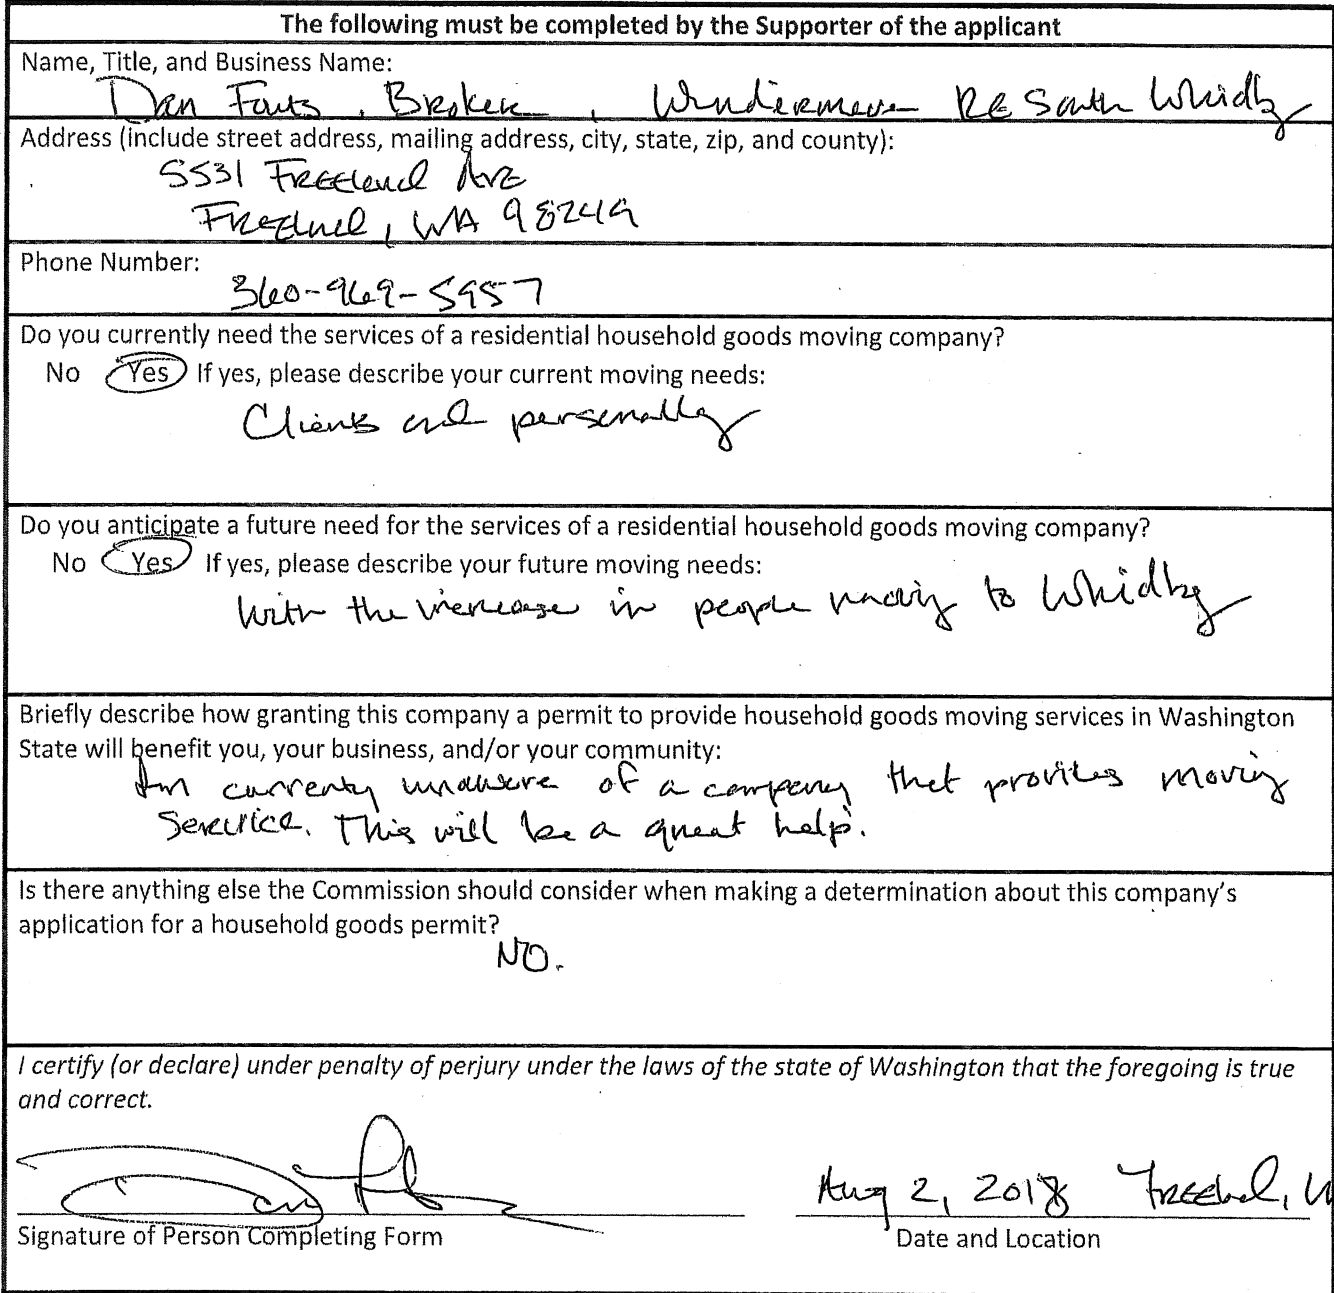 The following must be completed by the Supporter of the applicant
Name, Title, and Business Name:
Dan Fouts, Broker, Windermere RE South Whidby
Address (include street address, mailing address, city, state, zip, and county):
5531 Freeland Ave
Freeland, WA 98249
Phone Number:
360-969-5957
Do you currently need the services of a residential household goods moving company?
No Yes If yes, please describe your current moving needs:
Clients and personally
Do you anticipate a future need for the services of a residential household goods moving company?
No Yes If yes, please describe your future moving needs:
With the increase in people moving to Whidby
Briefly describe how granting this company a permit to provide household goods moving services in Washington
State will benefit you, your business, and/or your community:
Im currenty unaware of a company that provides moving
Service. This will be a great help.
Is there anything else the Commission should consider when making a determination about this company's
application for a household goods permit?
NO.
I certify (or declare) under penalty of perjury under the laws of the state of Washington that the foregoing is true
and correct.
Aug 2, 2018 Freeland, W
Signature of Person Completing Form Date and Location